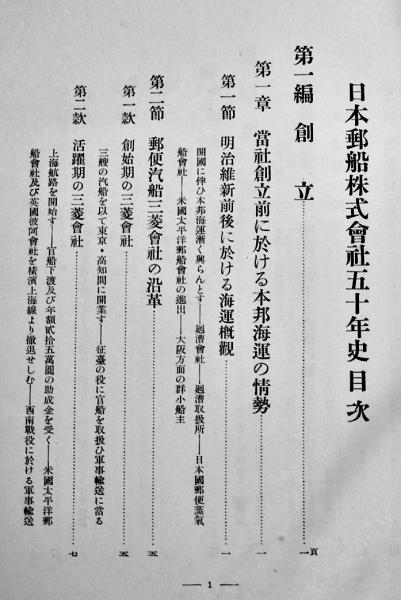 日本郵船株式會社五十年史目次
第一編 創立…………一頁
第一章 當社創立前に於ける本邦海運の情勢…………一
第一節 明治維新前後に於ける海運槪觀…………一
開國に伴ひ本邦海運漸く興らんとす――廻漕會社――廻漕取扱所――日本國郵便蒸氣
船會社――米國太平洋郵船會社の進出――大阪方面の群小船主
第二節 郵便汽船三菱會社の沿革…………五
第一款 創始期の三菱會社…………五
三艘の汽船を以て東京・高知間に開業す――征臺の役に官船を取扱ひ軍事輸送に當る
第二款 活躍期の三菱會社…………七
上海航路を開始す――官船下渡及び年額貳拾五萬圓の助成金を受く――米國太平洋郵
船會社及び英國彼阿會社を橫濱上海線より撤退せしむ――西南戰役に於ける軍事輸送
― 1 ―